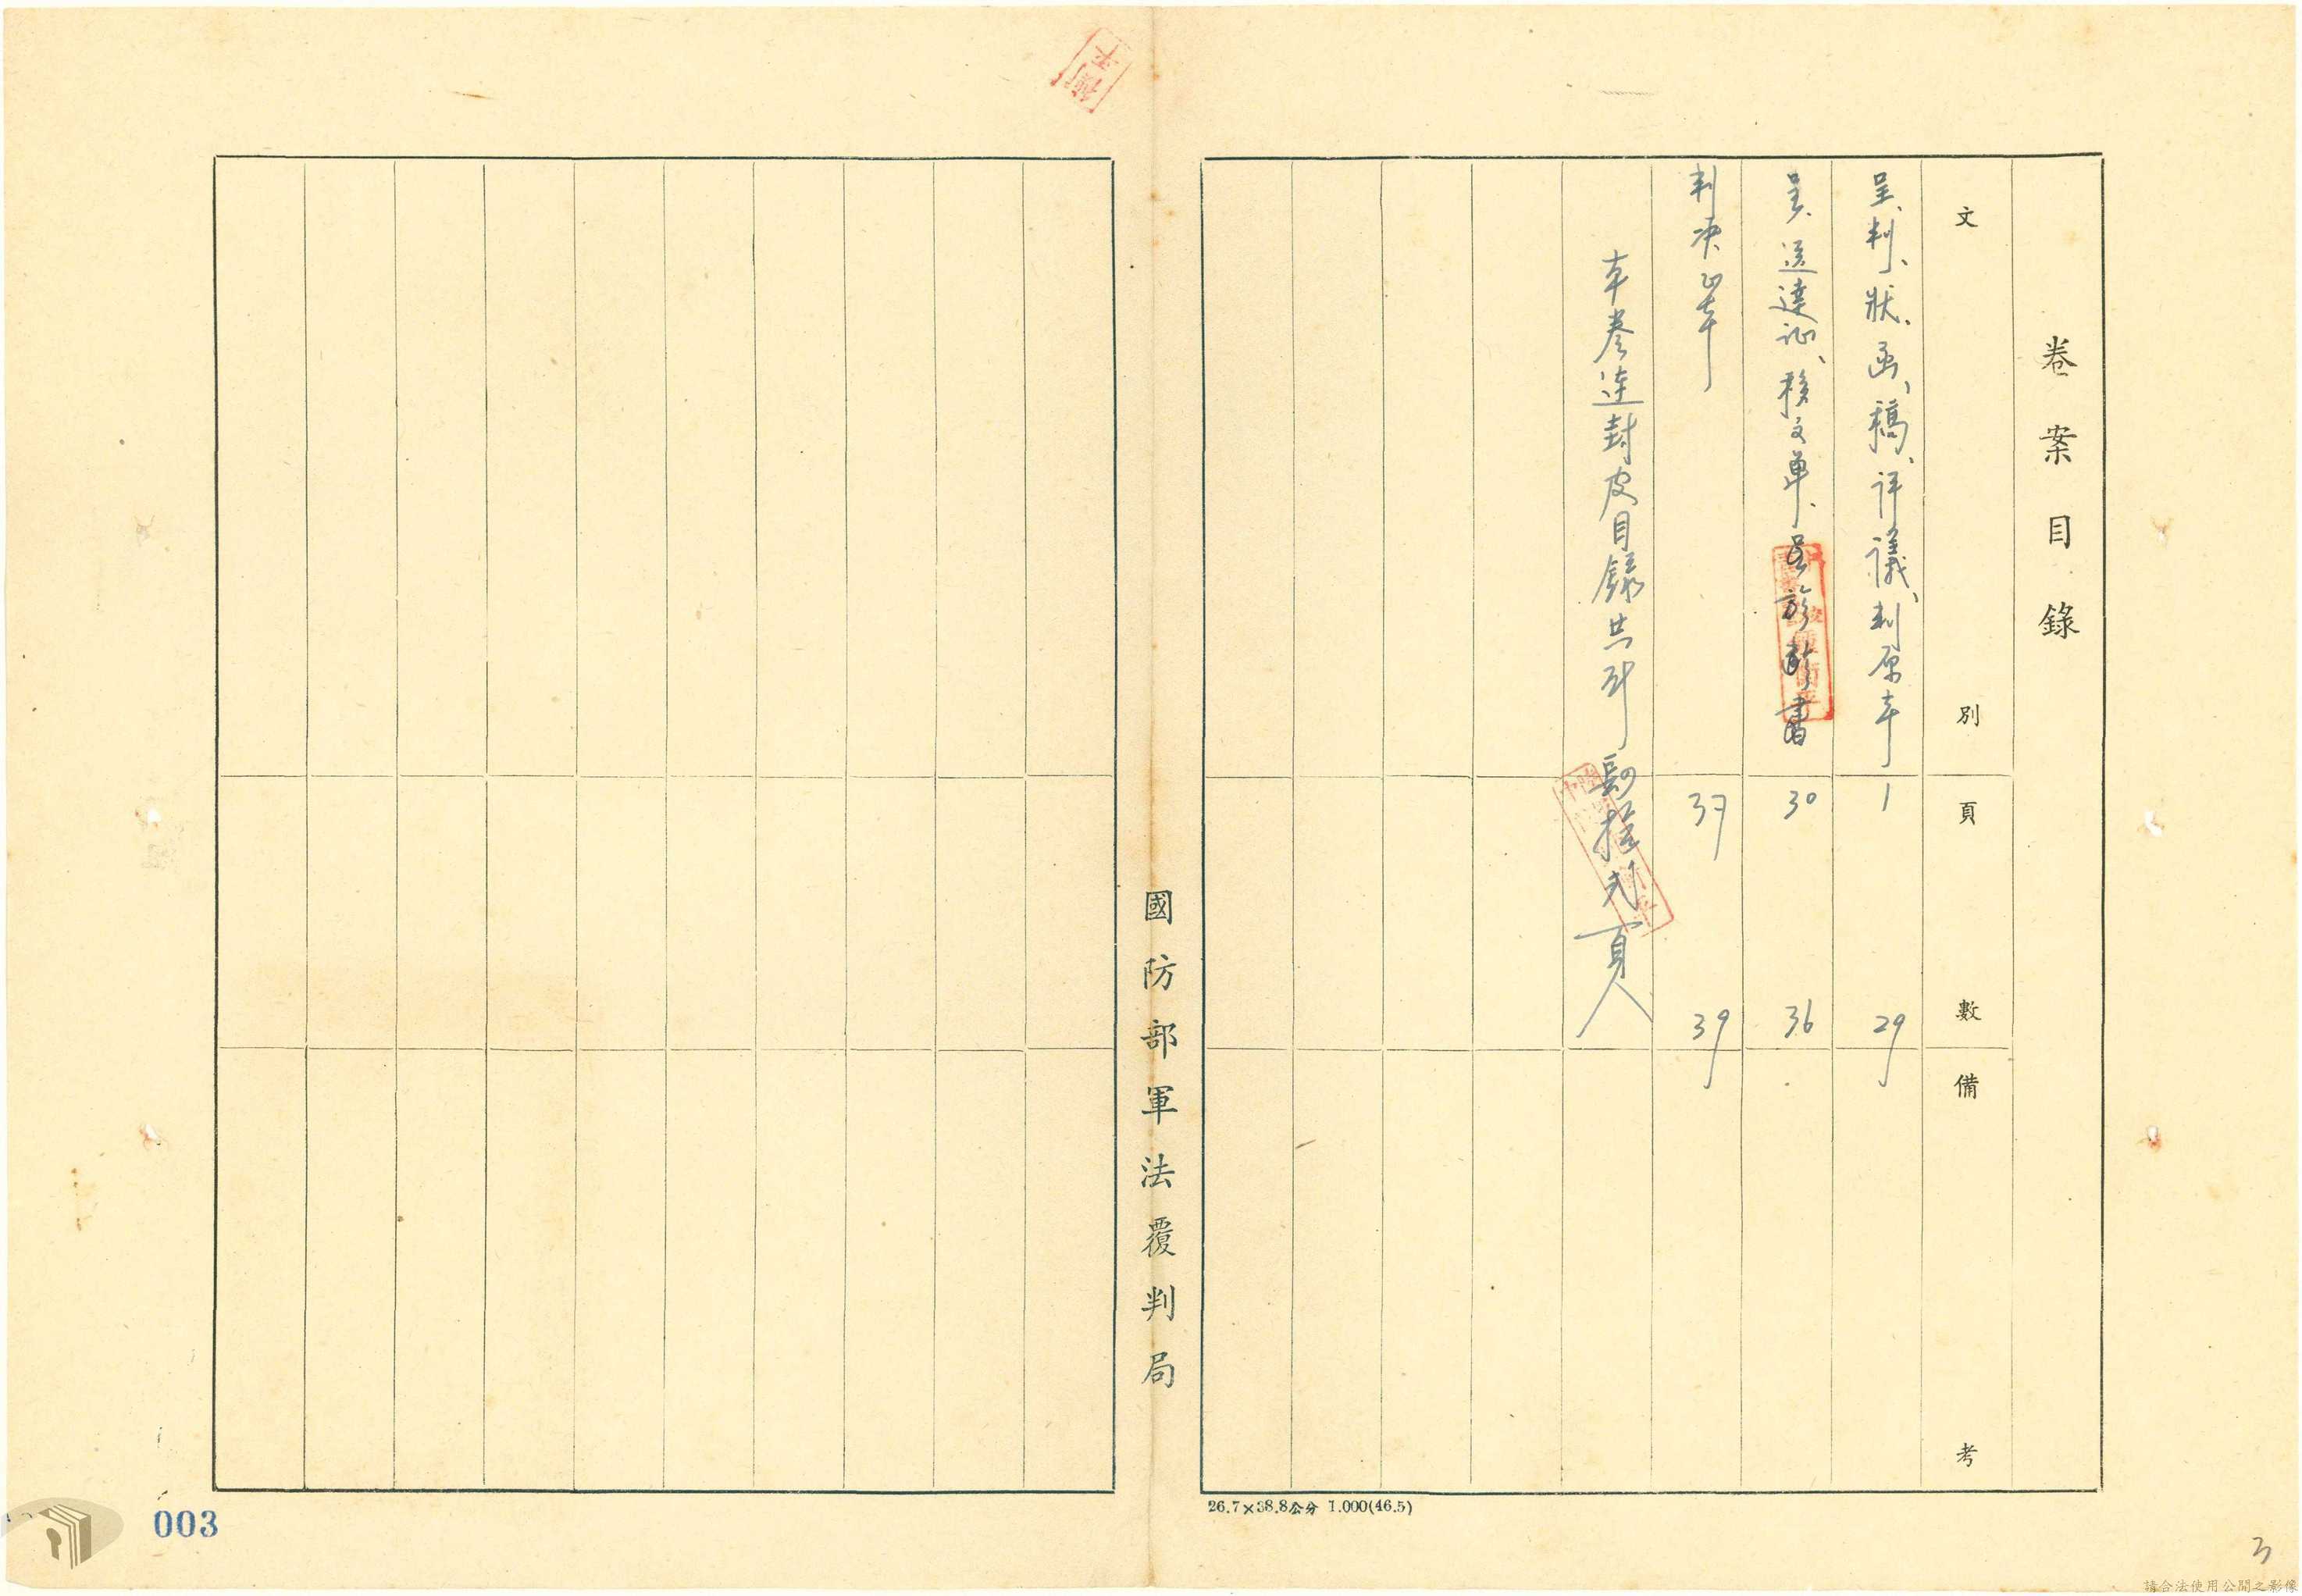 卷案目錄
文別
頁數
備考
呈、判、狀、函、稿、評議、判原本
1
29
呈、送達证、移文單、呈
書
30
36
判决正本
37
39
本卷連封皮目錄共計肆拾弍頁
國防部軍法覆判局
26.7×38.8公分 1.000(46.5)
003
3
請合法使用公開之影像